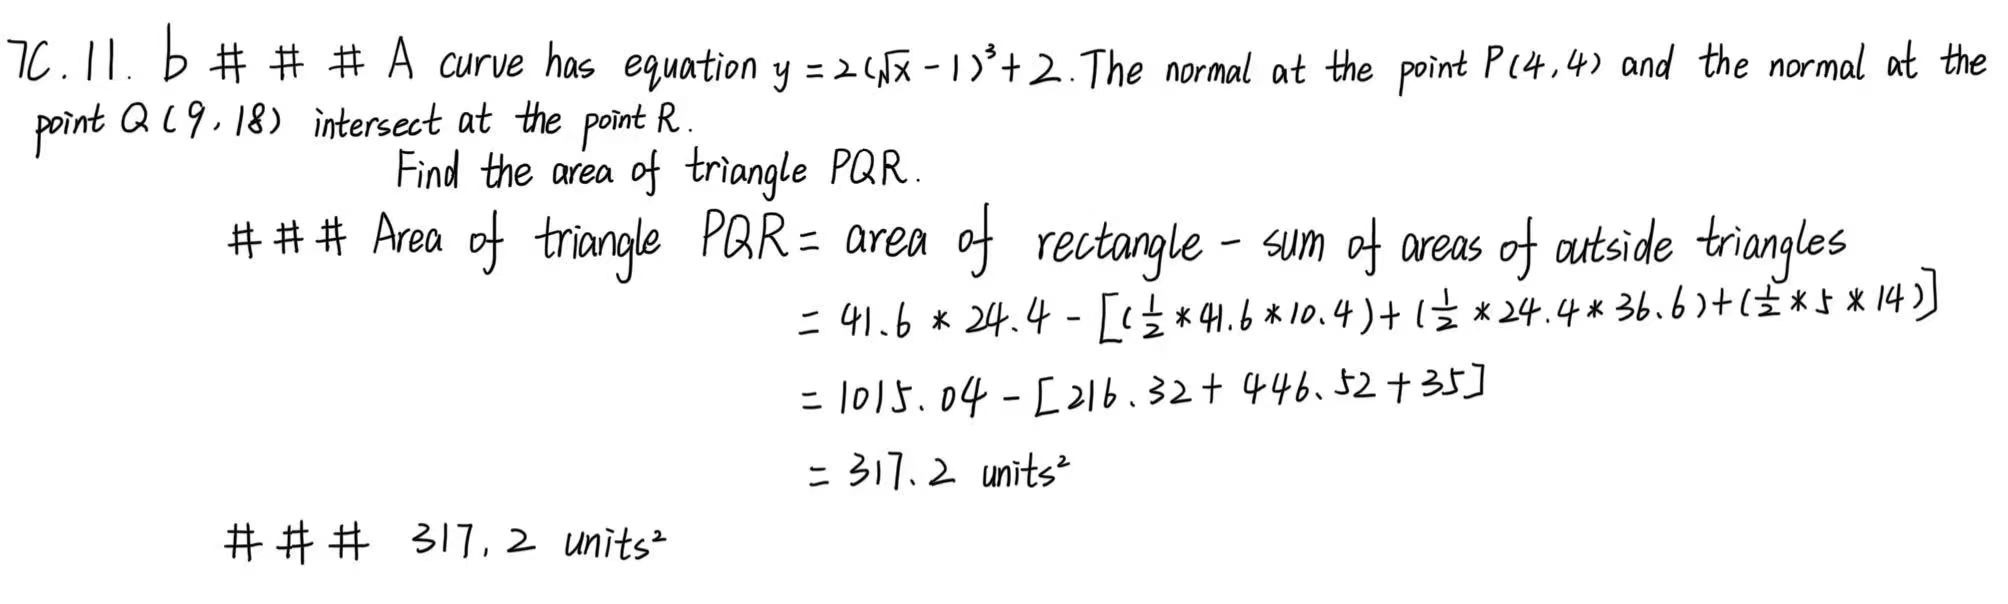 7C.11. b # # # A curve has equation y = 2(√x - 1)³ + 2. The normal at the point P(4,4) and the normal at the
point Q(9,18) intersect at the point R.
Find the area of triangle PQR.
# # # Area of triangle PQR = area of rectangle - sum of areas of outside triangles
= 41.6 * 24.4 - [(1/2 * 41.6 * 10.4) + (1/2 * 24.4 * 36.6) + (1/2 * 5 * 14)]
= 1015.04 - [216.32 + 446.52 + 35]
= 317.2 units²
# # # 317.2 units²